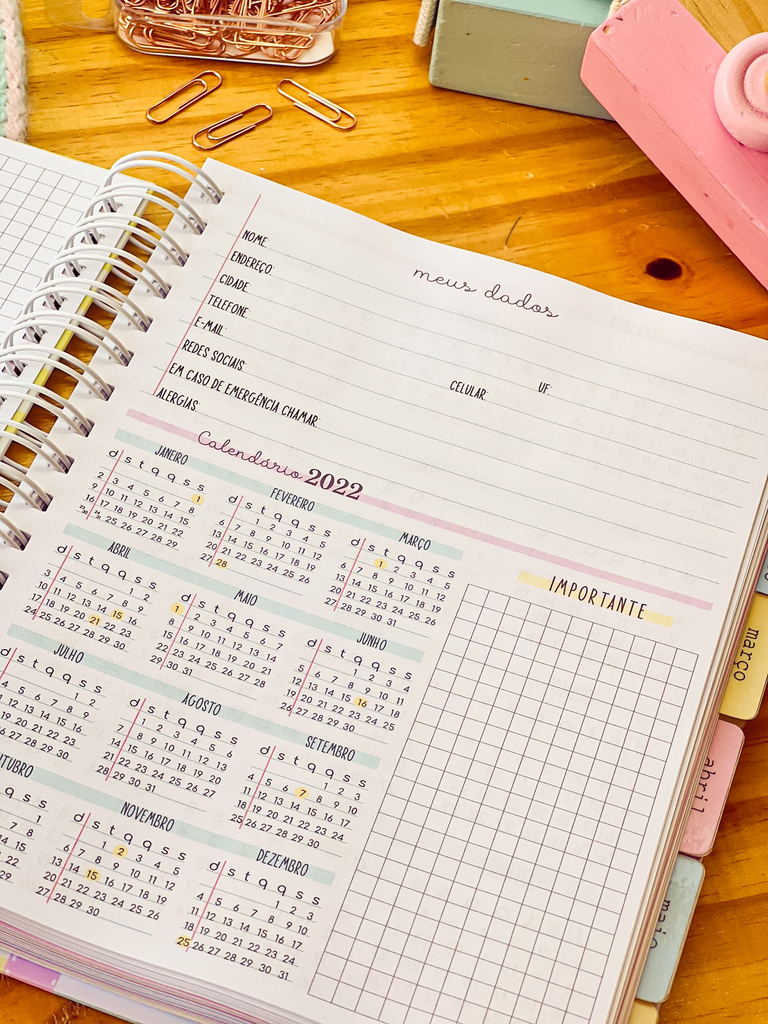 meus dados
NOME:
ENDEREÇO:
CIDADE: UF:
TELEFONE: CELULAR:
E-MAIL:
REDES SOCIAIS:
EM CASO DE EMERGÊNCIA CHAMAR:
ALERGIAS:
Calendário 2022
JANEIRO
d s t q q s s
1
2 3 4 5 6 7 8
9 10 11 12 13 14 15
16 17 18 19 20 21 22
25 26 27 28 29
FEVEREIRO
d s t q q s s
1 2 3 4 5
6 7 8 9 10 11 12
13 14 15 16 17 18 19
20 21 22 23 24 25 26
27 28
MARÇO
d s t q q s s
1 2 3 4 5
6 7 8 9 10 11 12
13 14 15 16 17 18 19
20 21 22 23 24 25 26
27 28 29 30 31
ABRIL
d s t q q s s
1 2
3 4 5 6 7 8 9
10 11 12 13 14 15 16
17 18 19 20 21 22 23
24 25 26 27 28 29 30
MAIO
d s t q q s s
1 2 3 4 5 6 7
8 9 10 11 12 13 14
15 16 17 18 19 20 21
22 23 24 25 26 27 28
29 30 31
JUNHO
d s t q q s s
1 2 3 4
5 6 7 8 9 10 11
12 13 14 15 16 17 18
19 20 21 22 23 24 25
26 27 28 29 30
JULHO
s t q q s s
1 2
4 5 6 7 8 9
12 13 14 15 16
19 20 21 22 23
26 27 28 29 30
AGOSTO
d s t q q s s
1 2 3 4 5 6
7 8 9 10 11 12 13
14 15 16 17 18 19 20
21 22 23 24 25 26 27
28 29 30 31
SETEMBRO
d s t q q s s
1 2 3
4 5 6 7 8 9 10
11 12 13 14 15 16 17
18 19 20 21 22 23 24
25 26 27 28 29 30
UTUBRO
q s s
1
7 8
14 15
22
29
NOVEMBRO
d s t q q s s
1 2 3 4 5
6 7 8 9 10 11 12
13 14 15 16 17 18 19
20 21 22 23 24 25 26
27 28 29 30
DEZEMBRO
d s t q q s s
1 2 3
4 5 6 7 8 9 10
11 12 13 14 15 16 17
18 19 20 21 22 23 24
25 26 27 28 29 30 31
IMPORTANTE
março
abril
maio